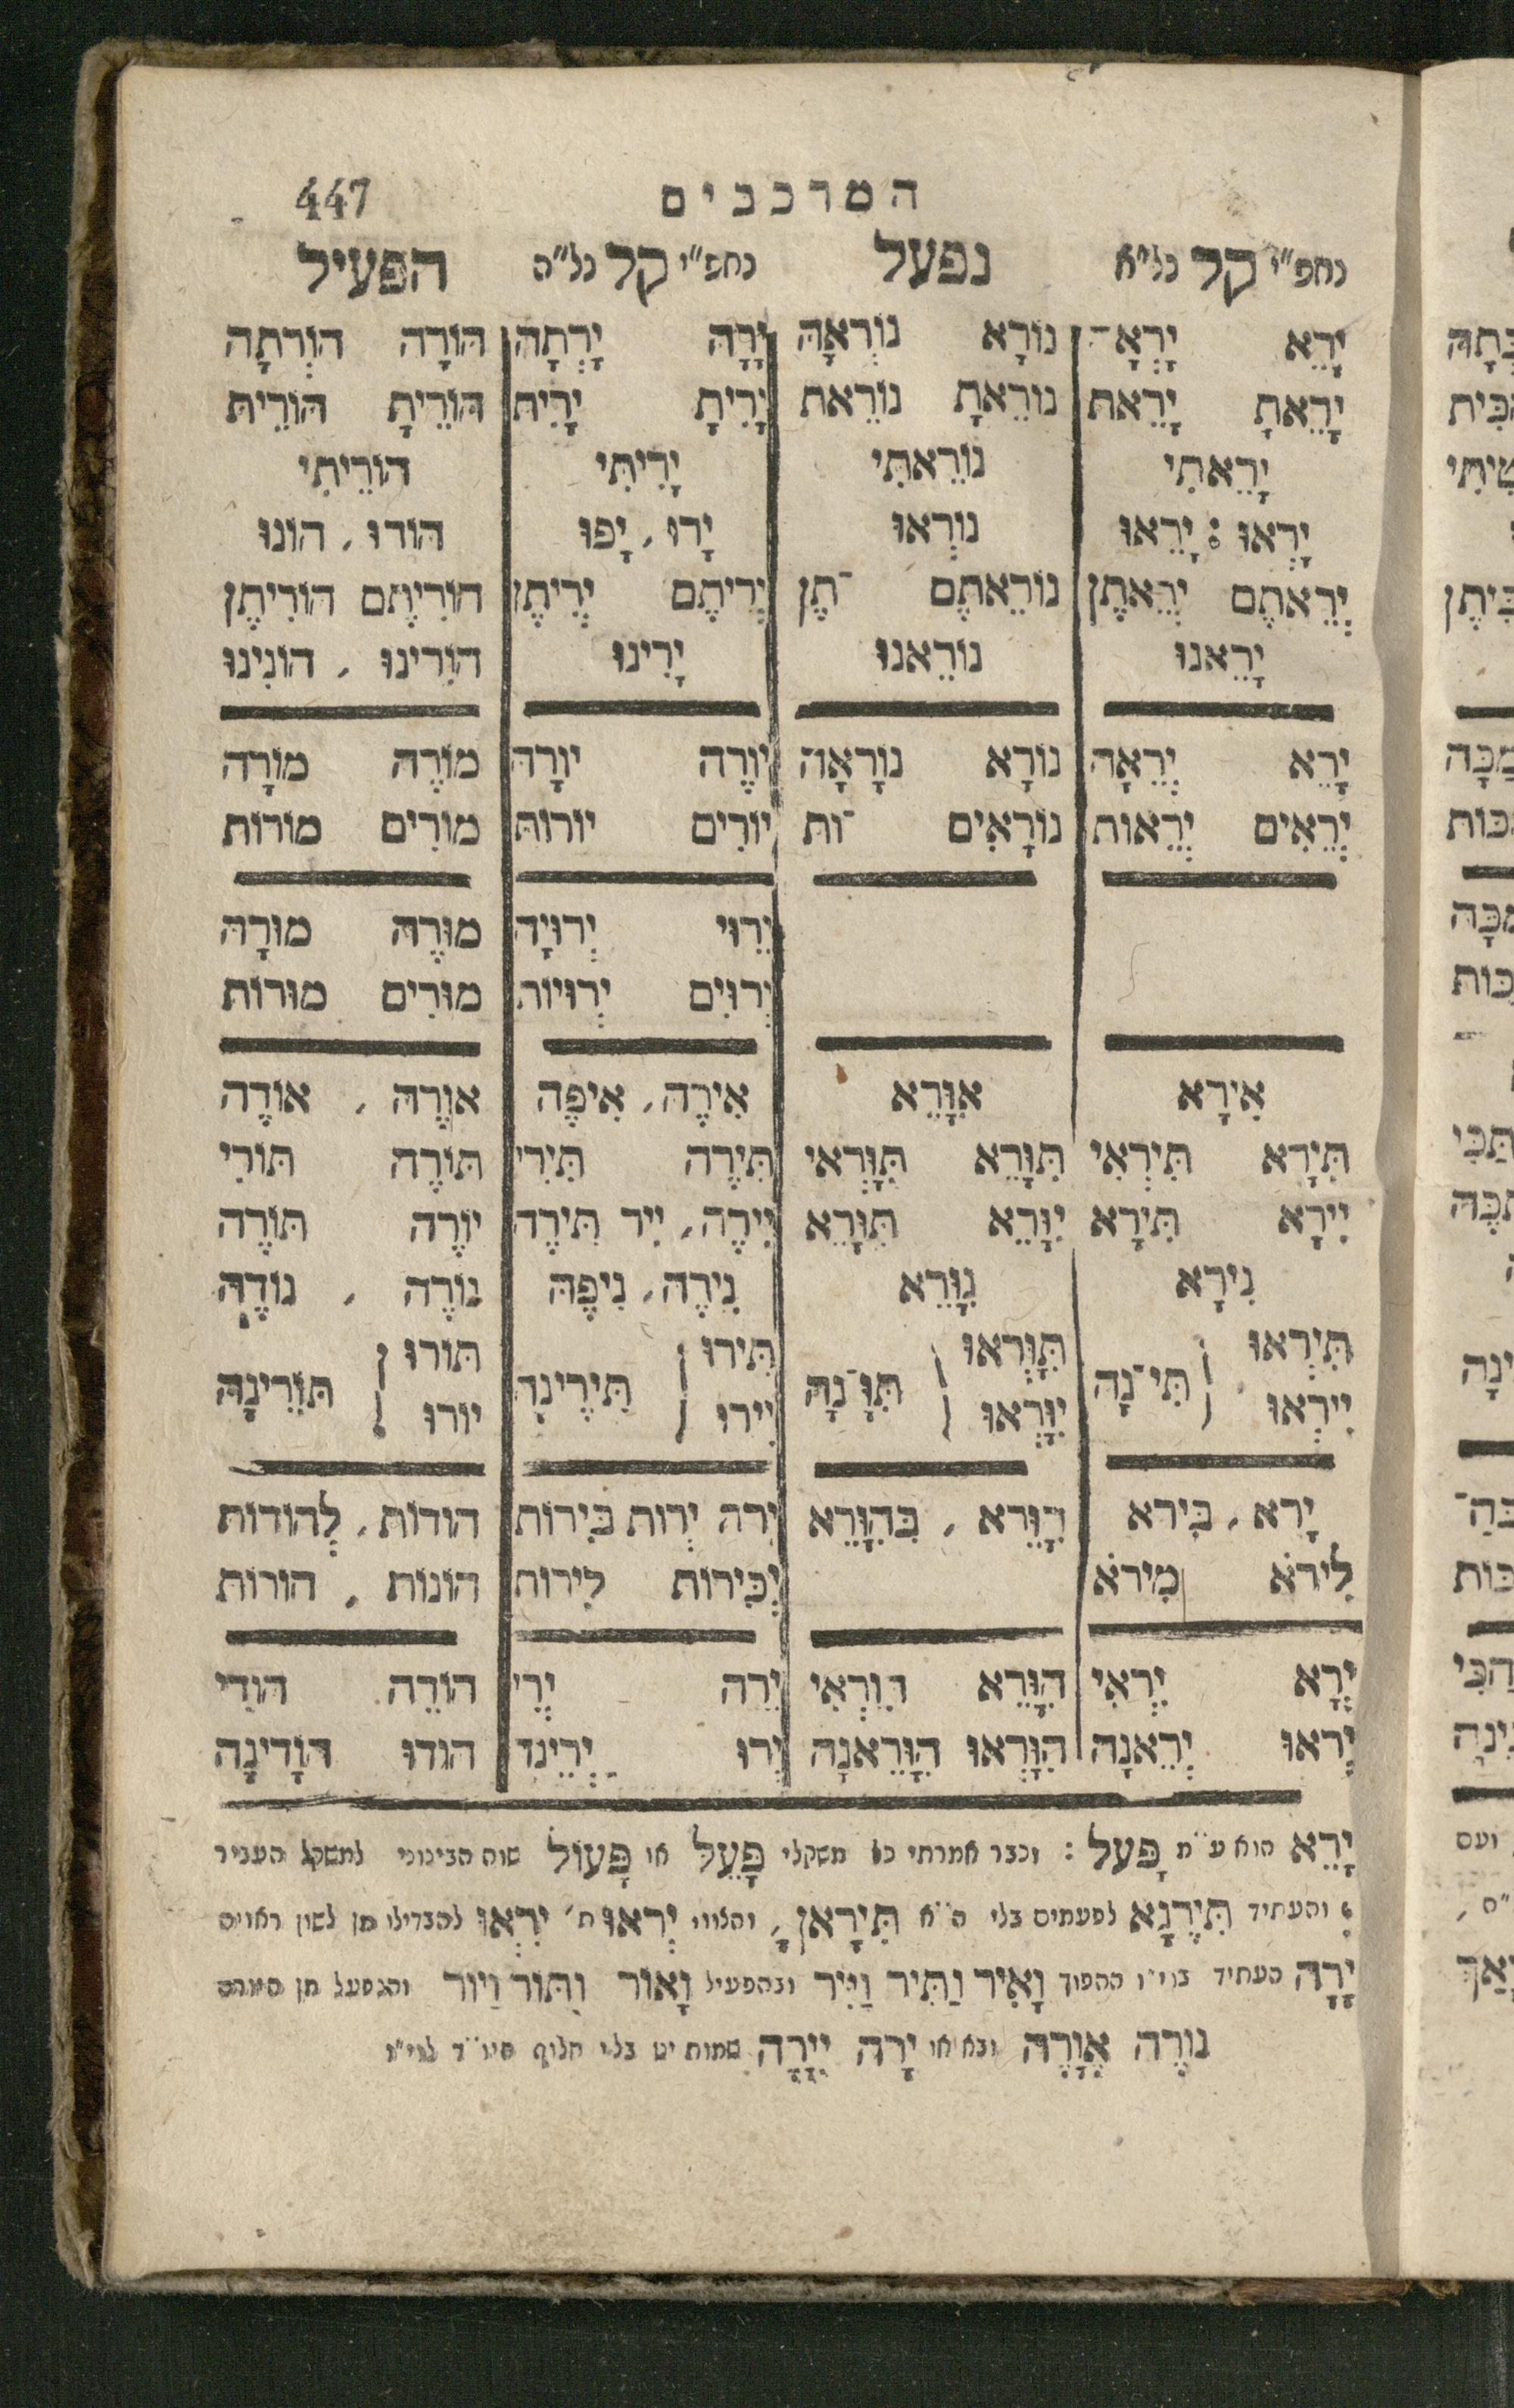 המרכבים 447
נחפ"י קל נל"א נפעל נחפ"י קל נל"ה הפעיל
יָרֵא יָרְאָ־ נוֹרָא נוֹרְאָה יָרָה יָרְתָה הוֹרָה הוֹרְתָה
יָרֵאתָ יָרֵאת נוֹרֵאתָ נוֹרֵאת יָרִיתָ יָרִית הוֹרֵיתָ הוֹרֵית
יָרֵאתִי נוֹרֵאתִי יָרִיתִי הוֹרֵיתִי
יָרְאוּ : יָרֵאוּ נוֹרְאוּ יָרוּ, יָפוּ הוֹרוּ, הוֹנוּ
יְרֵאתֶם יְרֵאתֶן נוֹרֵאתֶם ־תֶן יְרִיתֶם יְרִיתֶן הוֹרִיתֶם הוֹרִיתֶן
יָרֵאנוּ נוֹרֵאנוּ יָרִינוּ הוֹרִינוּ, הוֹנִינוּ
יָרֵא יְרֵאָה נוֹרָא נוֹרָאָה יוֹרֶה יוֹרָה מוֹרֶה מוֹרָה
יְרֵאִים יְרֵאוֹת נוֹרָאִים ־וֹת יוֹרִים יוֹרוֹת מוֹרִים מוֹרוֹת
יָרוּי יְרוּיָה מוּרֶה מוּרָה
יְרוּיִם יְרוּיוֹת מוּרִים מוּרוֹת
אִירָא אִוָּרֵא אִירֶה, אִיפֶה אוֹרֶה, אוֹדֶה
תִּירָא תִּירְאִי תִּוָּרֵא תִּוָּרְאִי תִּירֶה תִּירִי תּוֹרֶה תּוֹרִי
יִירָא תִּירָא יִוָּרֵא תִּוָּרֵא יִירֶה, יִיר תִּירֶה יוֹרֶה תּוֹרֶה
נִירָא נִוָּרֵא נִירֶה, נִיפֶה נוֹרֶה, נוֹדֶה
תִּירְאוּ תִּוָּרְאוּ תִּירוּ תּוֹרוּ
תִּי־נָה תִּוָּ־נָה תִּירֶינָה תּוֹרֵינָה
יִירְאוּ יִוָּרְאוּ יִירוּ יוֹרוּ
יָרֹא, בִּירֹא הִוָּרֵא, בְּהִוָּרֵא יָרֹה יְרוֹת בִּירוֹת הוֹדוֹת, לְהוֹדוֹת
לִירֹא מִירֹא כִּירוֹת לִירוֹת הוֹנוֹת, הוֹרוֹת
יְרָא יִרְאִי הִוָּרֵא הִוָּרְאִי יְרֵה יְרִי הוֹרֵה הוֹדִי
יְראוּ יְרֵאנָה הִוָּרְאוּ הִוָּרֵאנָה יְרוּ יְרֵינָה הוֹדוּ הוֹדֵינָה
יָרֵא הוא ע"מ פָּעֵל : וכבר אמרתי כל משקלי פָּעֵל או פָּעוֹל שוה הבינוני למשקל העבר
והעתיד תִּירֶנָא לפעמים בלי ה"א תִּירָאןָ, והלווי יְראוּ ת' יִרְאוּ להבדילו מן לשון ראיה
יָרָה העתיד בוי"ו ההפוך וָאִיר וַתִּיר וַיִּיר ובהפעיל וָאוֹר וַתּוֹר וַיּוֹר והנפעל מן
נוֹרֶה אִוָּרֶה ובא או יָרֹה יִיָּרֶה שמות יט בלי חלוף היו"ד לוי"ו